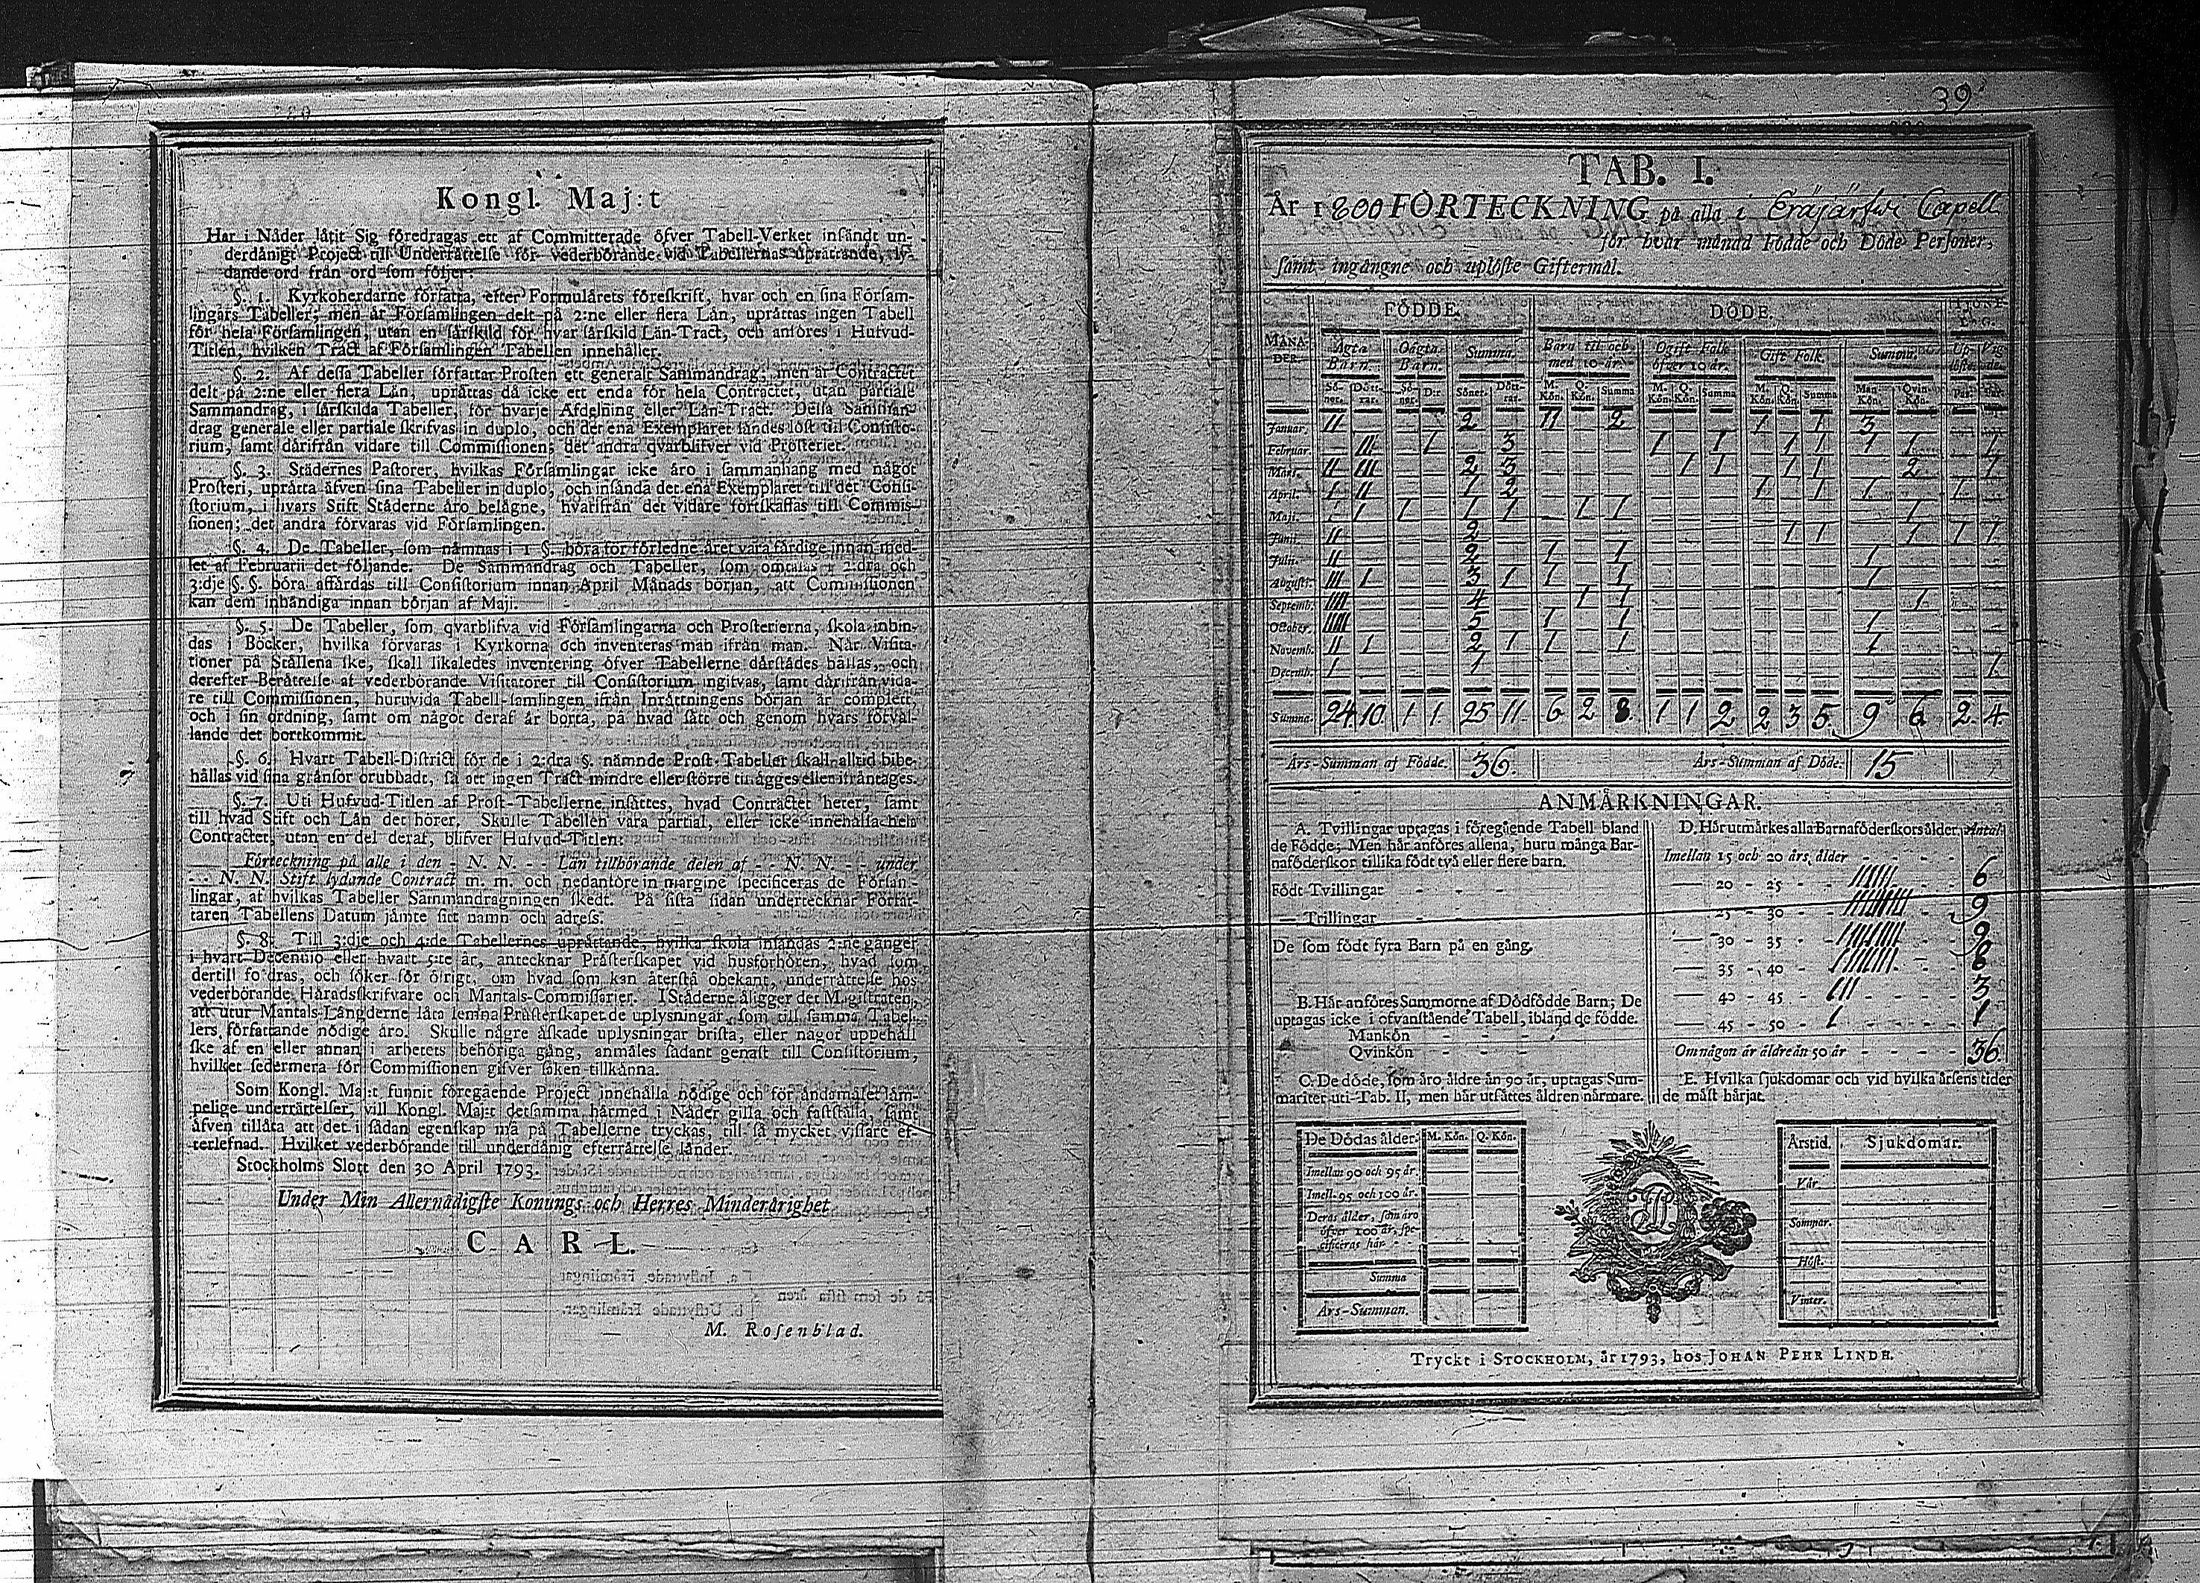 Kongl. Maj:t
Har i Nåder låtit Sig föredragas ett af Committerade öfver Tabell-Verket insändt un-
derdånigt Project till Underrättelse för vederbörande vid Tabellernas upprättande, ly-
dande ord från ord som följer:
§. 1. Kyrkoherdarne författa, efter Formulärets föreskrift, hvar och en sina Försam-
lingars Tabeller; men är Församlingen delt på 2:ne eller flera Län, upråttas ingen Tabell
för hela Församlingen, utan en särskild för hvar särskild Län-Tract, och anföres i Hufvud-
Titlen, hvilken Tract af Församlingen Tabellen innehåller.
§. 2. Af dessa Tabeller författar Prosten ett generalt Sammandrag; men är Contractet
delt på 2:ne eller flera Län, upråttas då icke ett enda för hela Contractet, utan partiale
Sammandrag, i särskilda Tabeller, för hvarje Afdelning eller Län-Tract. Dessa Samman-
drag generale eller partiale skrifvas in duplo, och det ena Exemplaret sändes löst till Consisto-
rium, samt därifrån vidare till Commissionen; det andra qvarblifver vid Prosteriet.
§. 3. Städernes Pastorer, hvilkas Församlingar icke äro i sammanhang med något
Prosteri, upråtta äfven sina Tabeller in duplo, och insända det ena Exemplaret till det Consi-
storium, i hvars Stift Städerne äro belägne, hvarifrån det vidare fortskaffas till Commis-
sionen; det andra förvaras vid Församlingen.
§. 4. De Tabeller, som nämnas i 1 §. böra för förledne året vara färdige innan med-
let af Februarii det följande. De Sammandrag och Tabeller, som omtalas i 2:dra och
3:dje §. §. böra affärdas till Consistorium innan April Månads början, att Commissionen
kan dem inhändiga innan början af Maji.
§. 5. De Tabeller, som qvarblifva vid Församlingarna och Prosterierna, skola inbin-
das i Böcker, hvilka förvaras i Kyrkorna och inventeras man ifrån man. När Visita-
tioner på Ställena ske, skall likaledes inventering öfver Tabellerne därstädes hållas, och
derefter Berättelse af vederbörande Visitatorer till Consistorium ingifvas, samt därifrån vida-
re till Commissionen, huruvida Tabell-samlingen ifrån Inrättningens början är complett,
och i sin ordning, samt om något deraf är borta, på hvad sätt och genom hvars förvål-
lande det bortkommit.
§. 6. Hvart Tabell-District för de i 2:dra §. nämnde Prost-Tabeller skall alltid bibe-
hållas vid sina gränsor orubbadt, så att ingen Tract mindre eller större tillägges eller ifråntages.
§. 7. Uti Hufvud-Titlen af Prost-Tabellerne insättes, hvad Contractet heter, samt
till hvad Stift och Län det hörer. Skulle Tabellen vara partial, eller icke innehålla hela
Contractet, utan en del deraf, blifver Hufvud-Titlen:
Förteckning på alle i den - N. N. - - Län tillhörande delen af - N. N. - - under
- - N. N. Stift lydande Contract m. m. och nedanföre in margine specificeras de Försam-
lingar, af hvilkas Tabeller Sammandragningen skedt. På sista sidan undertecknar Författ-
taren Tabellens Datum jämte sitt namn och adress.
§. 8. Till 3:dje och 4:de Tabellernes upprättande, hvilka skola insändas 2:ne gånger
i hvart Decennio eller hvart 5:te år, antecknar Prästerskapet vid husförhören, hvad som
dertill fordras, och söker för öfrigt, om hvad som kan återstå obekant, underrättelse hos
vederbörande Häradsskrifvare och Mantals-Commissarier. I Städerne åligger det Magistraten,
att utur Mantals-Längderne låta lemna Prästerskapet de uplysningar, som till samma Tabel-
lers författande nödige äro. Skulle någre äskade uplysningar brista, eller något uppehåll
ske af en eller annan i arbetets behöriga gång, anmäles sådant genast till Consistorium,
hvilket sedermera för Commissionen gifver saken tillkänna.
Som Kongl. Maj:t funnit föregående Project innehålla nödige och för ändamålet läm-
pelige underrättelser, vill Kongl. Maj:t detsamma härmed i Nåder gilla och fastställa, samt
äfven tillåta att det i sådan egenskap må på Tabellerne tryckas, till så mycket vissare ef-
terlefnad. Hvilket vederbörande till underdånig efterrättelse länder.
Stockholms Slott den 30 April 1793.
Under Min Allernådigste Konungs och Herres Minderårighet
CARL.
M. Rosenblad.
39
TAB. I.
År 1800 FÖRTECKNING på alla i Eräjärfvi Capell
för hvar månad Födde och Döde Personer,
samt ingångne och uplöste Giftermål.
FÖDDE. DÖDE.
MÅNADER. Ägta Barn. Oägta Barn. Summa. Barn til och med 10 år. Ogift Folk öfver 10 år. Gift Folk. Summa.
Söner. Döttrar. Söner. D:r Söner. Döttrar. M. Kön. Q. Kön. Summa M. Kön. Q. Kön. Summa M. Kön. Q. Kön. Summa Man Kön. Qvin Kön. Par. Par.
Januar. 11 2 11 2 1 1 3
Februar. 111 1 3 1 1 1 1 1 1 1
Mars. 11 111 2 3 1 1 1 1 2 1
April. 1 11 1 2 1 1 1 1
Maji. 1 1 1 1 1 1 1
Junii. 11 2 1 1 1 1 1
Julii. 11 2 1 1 1
Augusti. 111 1 3 1 1 1 1
Septemb. 1111 4 1 1 1
October. 11111 5 1 1 1
Novemb. 11 1 2 1 1 1 1
Decemb. 1 1 1
Summa 24 10 1 1 25 11 6 2 8 1 1 2 2 3 5 9 6 2 4
Års-Summan af Födde. 36. Års-Summan af Döde. 15
ANMÄRKNINGAR.
A. Tvillingar uptagas i föregående Tabell bland
de Födde; Men här anföres allena, huru många Bar-
naföderskor tillika födt två eller flere barn.
Födt Tvillingar
— Trillingar
De som födt fyra Barn på en gång.
B. Här anföres Summorne af Dödfödde Barn; De
uptagas icke i ofvanstående Tabell, ibland de födde.
Mankön
Qvinkön
C. De döde, som äro äldre än 90 år, uptagas Sum-
mariter uti Tab. II, men här utsättes åldren närmare.
D. Här utmärkes alla Barnaföderskors ålder. Antal.
Imellan 15 och 20 års ålder
— 20 - 25 - 111111 6
— 25 - 30 - 111111111 9
— 30 - 35 - 111111111 9
— 35 - 40 - 11111111 8
— 40 - 45 - 111 3
— 45 - 50 - 1 1
Om någon är äldre än 50 år 36
E. Hvilka sjukdomar och vid hvilka årsens tider
de mäst härjat.
De Dödas ålder. M. Kön. Q. Kön.
Imellan 90 och 95 år.
Imell. 95 och 100 år.
Deras ålder, som äro
öfver 100 år, spe-
cificeras här
Summa
Års-Summan.
Årstid. Sjukdomar.
Vår.
Sommar.
Höst.
Vinter.
Tryckt i STOCKHOLM, år 1793, hos JOHAN PEHR LINDH.